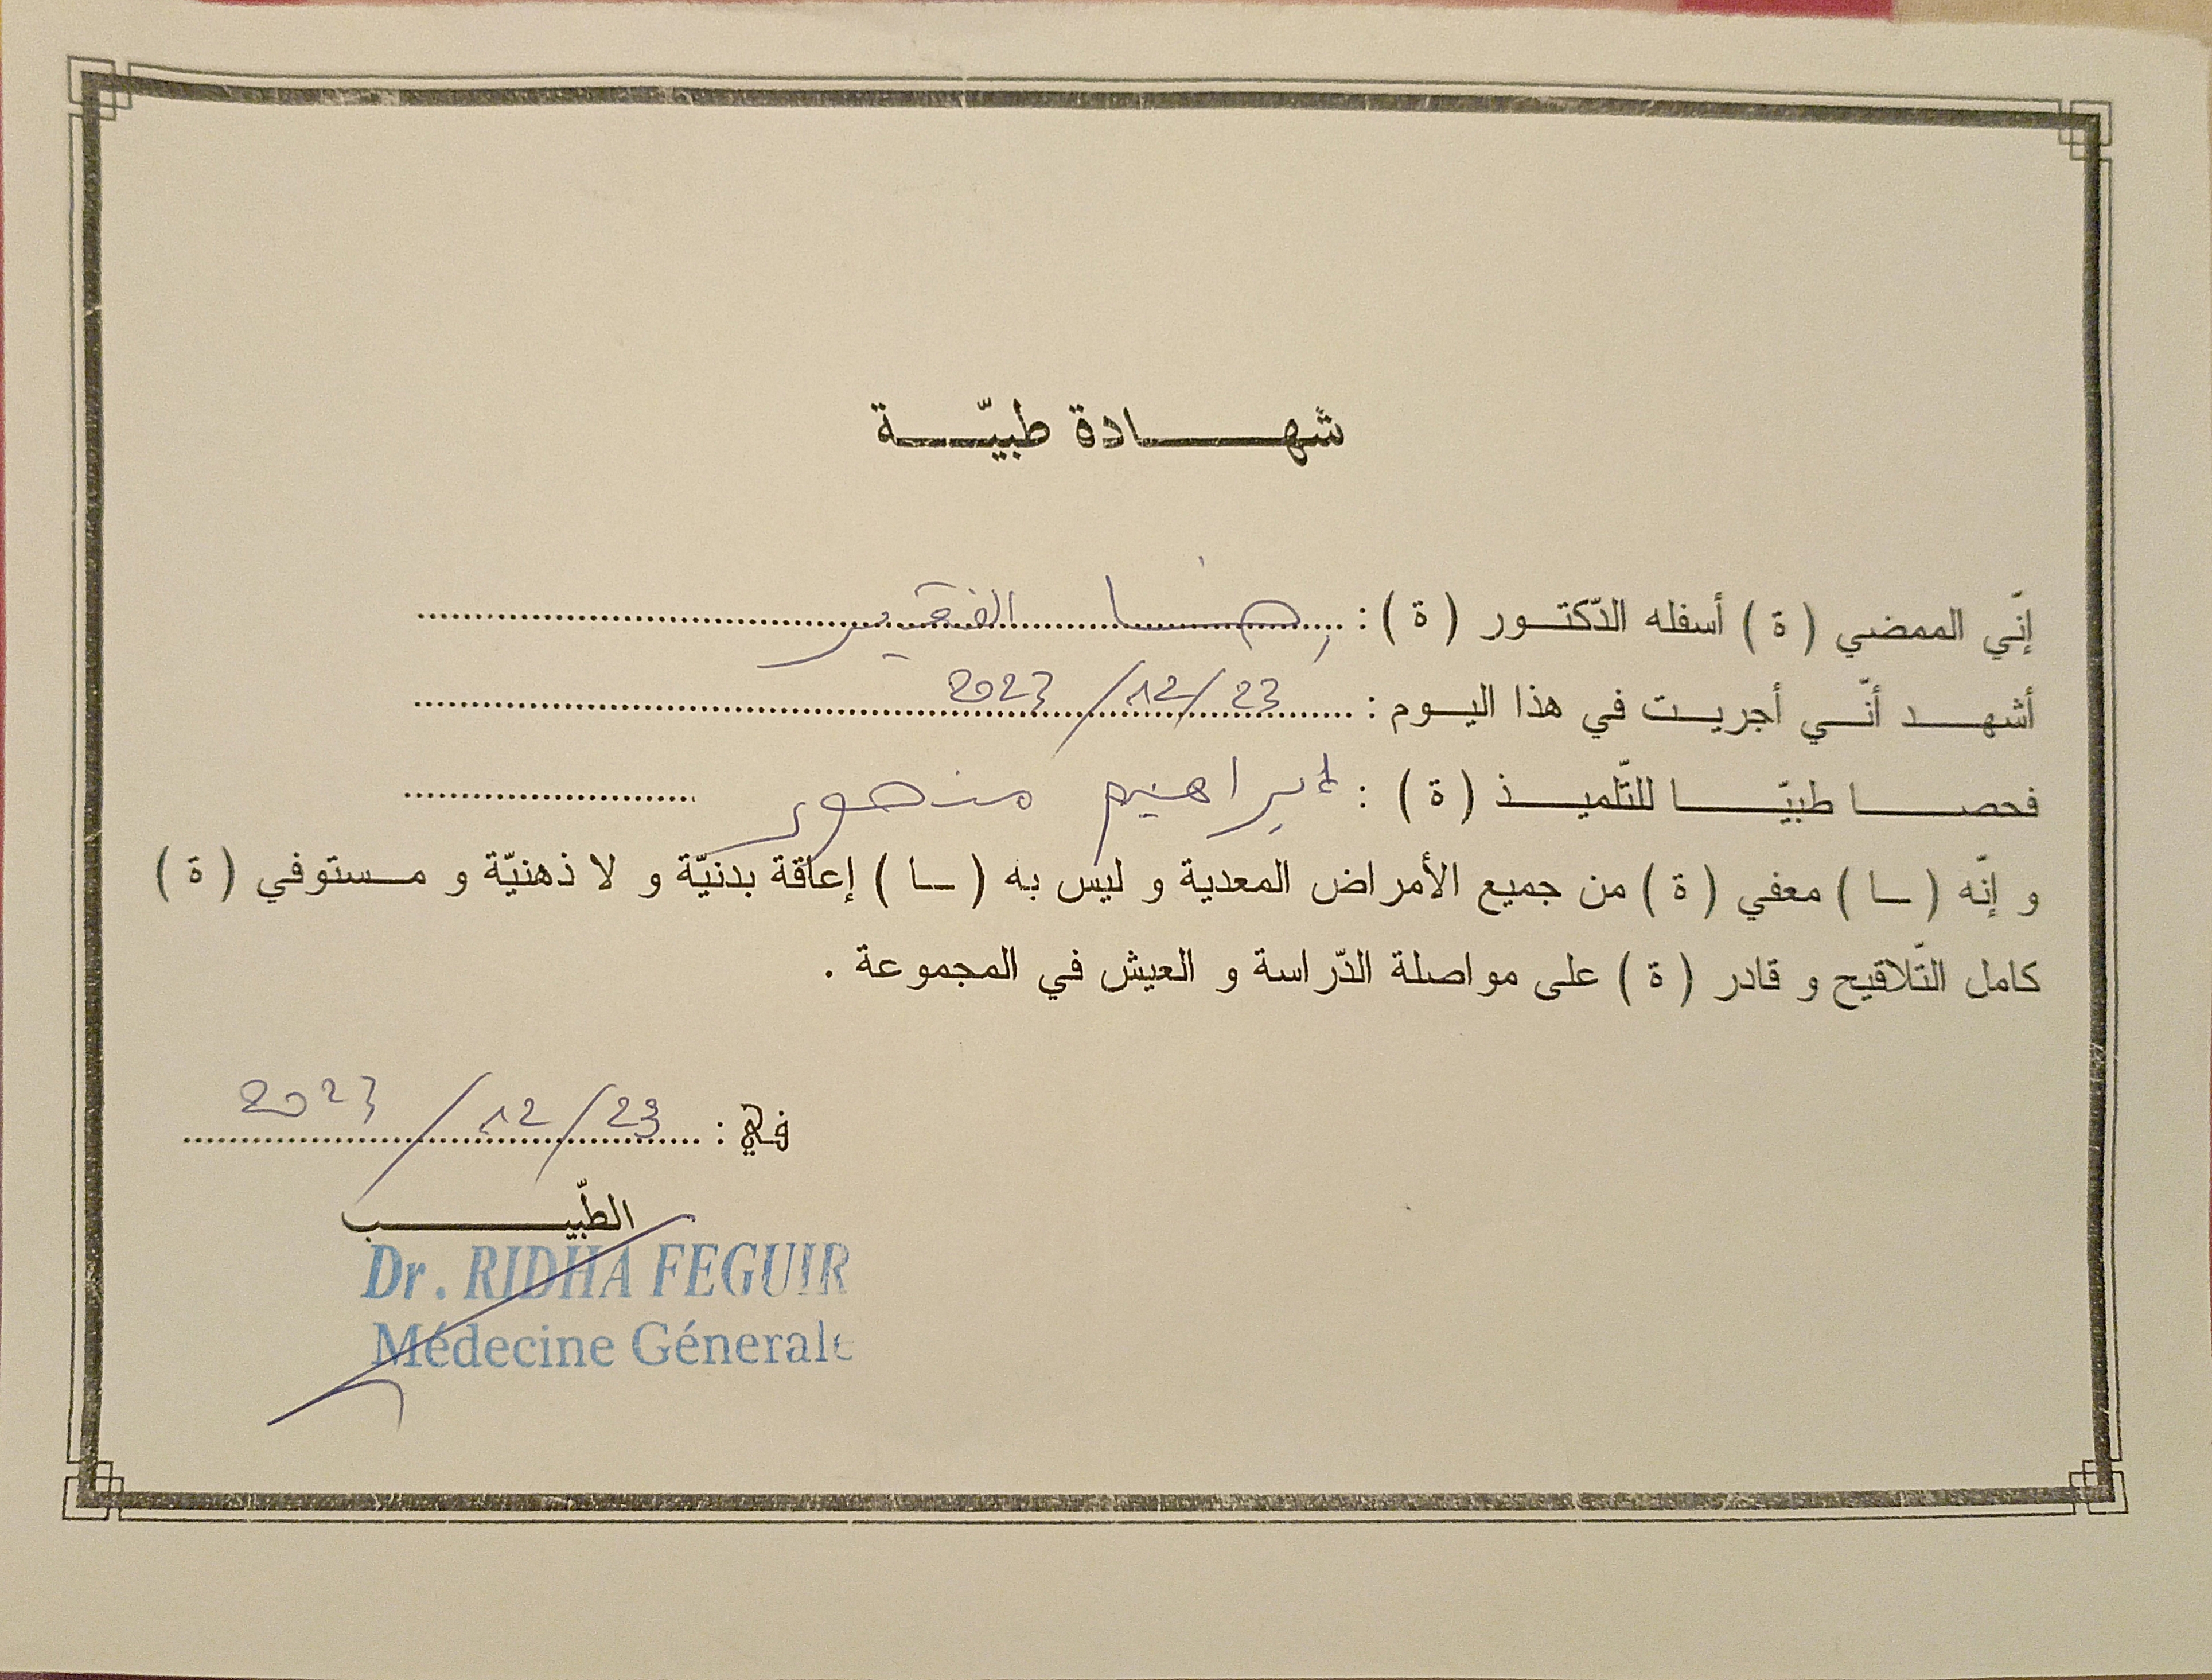 شهادة طبيّة
إنّي الممضي ( ة ) أسفله الدّكتور ( ة ) : رضا الفقير
أشهد أنّي أجريت في هذا اليوم : 23/12/2023
فحصا طبيّا للتّلميذ ( ة ) : ابراهيم منصور
و إنّه ( ـا ) معفي ( ة ) من جميع الأمراض المعدية و ليس به ( ـا ) إعاقة بدنيّة و لا ذهنيّة و مستوفي ( ة )
كامل التّلاقيح و قادر ( ة ) على مواصلة الدّراسة و العيش في المجموعة .
في : 23/12/2023
الطّبيب
Dr. RIDHA FEGUIR
Médecine Génerale